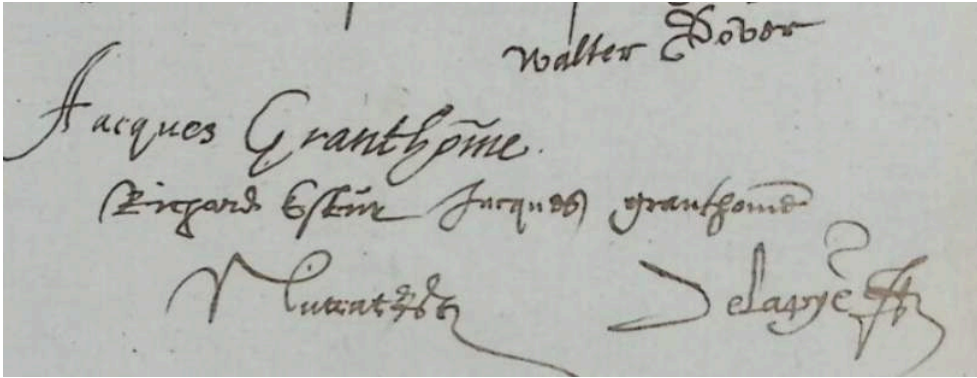 Walter Dover
Jacques Granthōme.
Richard Jacques granthomē
Delapye